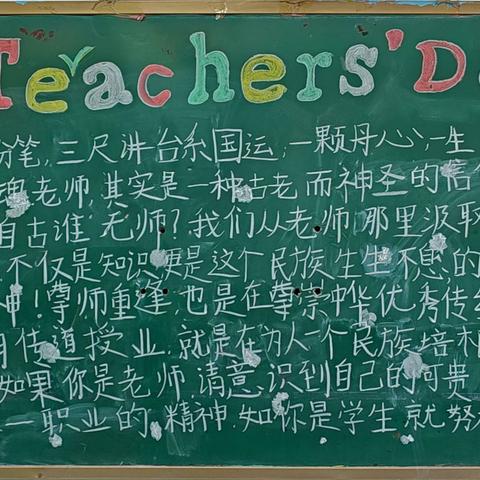 Teachers' D
粉笔,三尺讲台系国运,一颗丹心,一生
老师,其实是一种古老而神圣的信
自古谁无师?我们从老师那里汲取
不仅是知识更是这个民族生生不息的
神!尊师重道,也是在尊崇中华优秀传
传道授业,就是在为一个民族培
如果你是老师,请意识到自己的可贵
一职业的精神.如你是学生就努